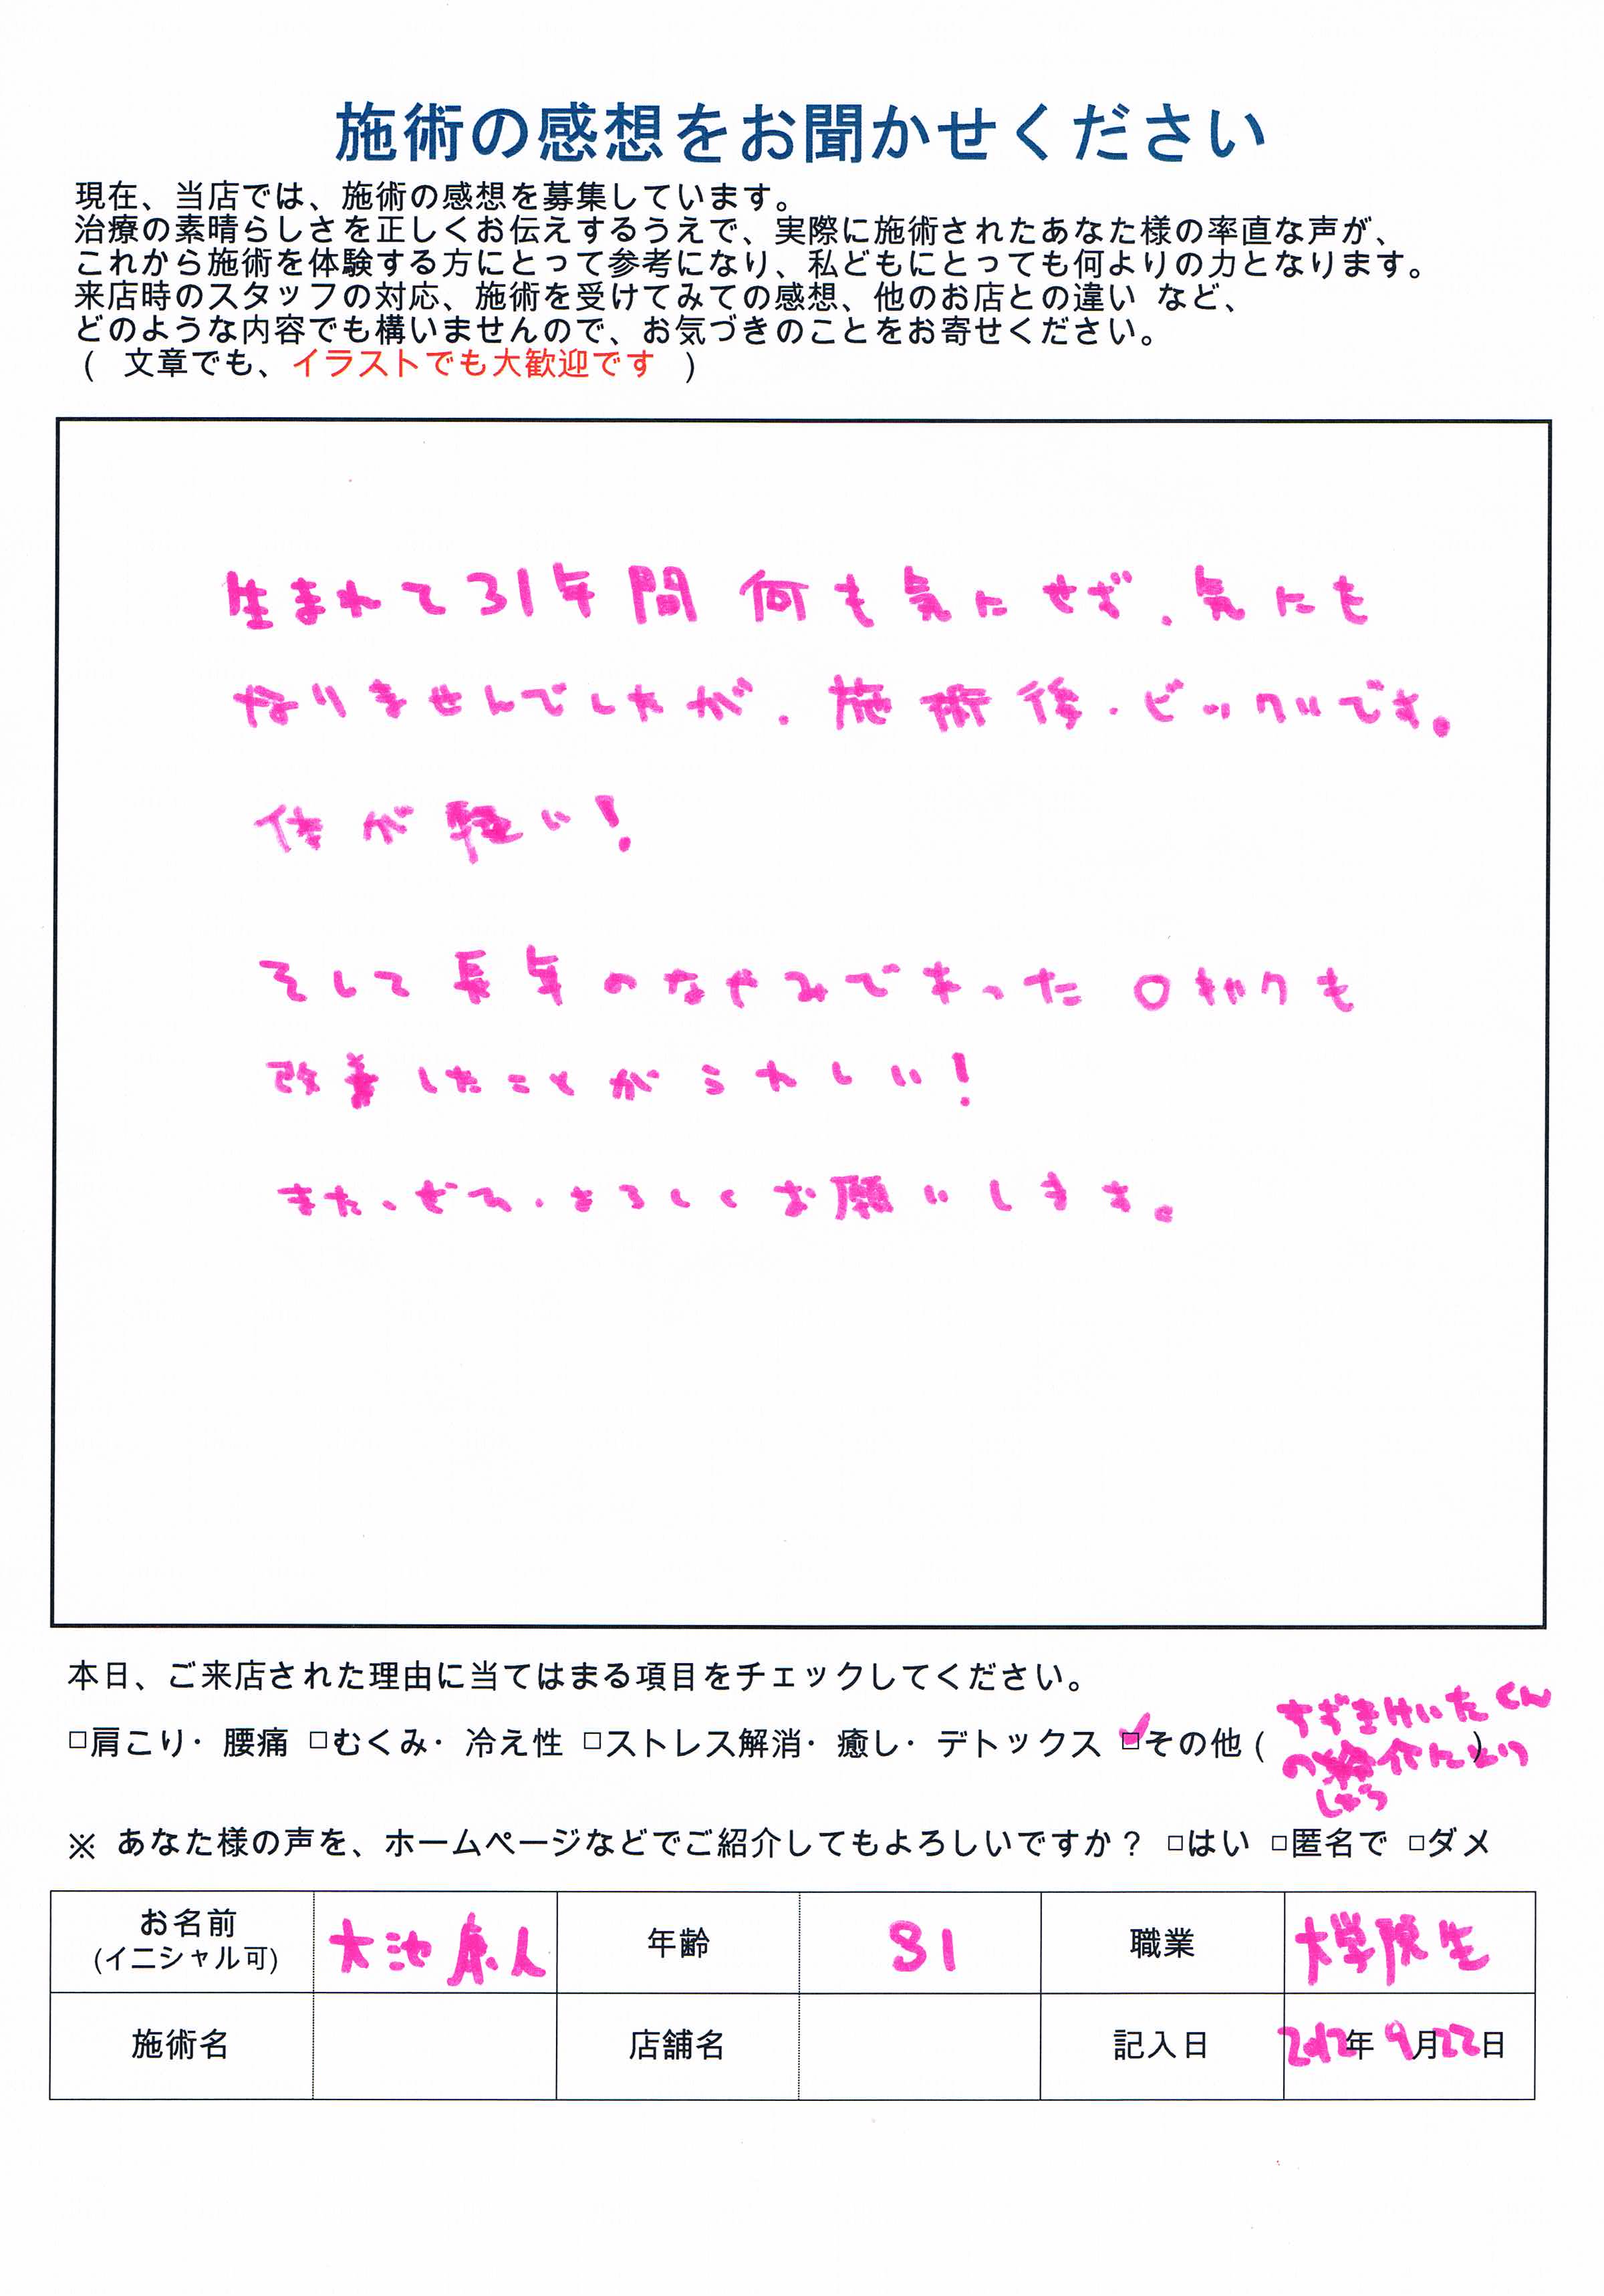 施術の感想をお聞かせください
現在、当店では、施術の感想を募集しています。
治療の素晴らしさを正しくお伝えするうえで、実際に施術されたあなた様の率直な声が、
これから施術を体験する方にとって参考になり、私どもにとっても何よりの力となります。
来店時のスタッフの対応、施術を受けてみての感想、他のお店との違い など、
どのような内容でも構いませんので、お気づきのことをお寄せください。
( 文章でも、イラストでも大歓迎です )
生まれて31年間 何も気にせず、気にも
なりませんでしたが、施術後、ビックリです。
体が軽い!
そして長年のなやみであった O キャクも
改善したことがうれしい!
また、ぜひ、よろしくお願いします。
本日、ご来店された理由に当てはまる項目をチェックしてください。
□肩こり・腰痛 □むくみ・冷え性 □ストレス解消・癒し・デトックス ☑その他 ( すずきけいたくん
の紹介により )
※ あなた様の声を、ホームページなどでご紹介してもよろしいですか? □はい □匿名で □ダメ
お名前 大池康人 年齢 31 職業 大学院生
(イニシャル可)
施術名 店舗名 記入日 2012年 9月22日